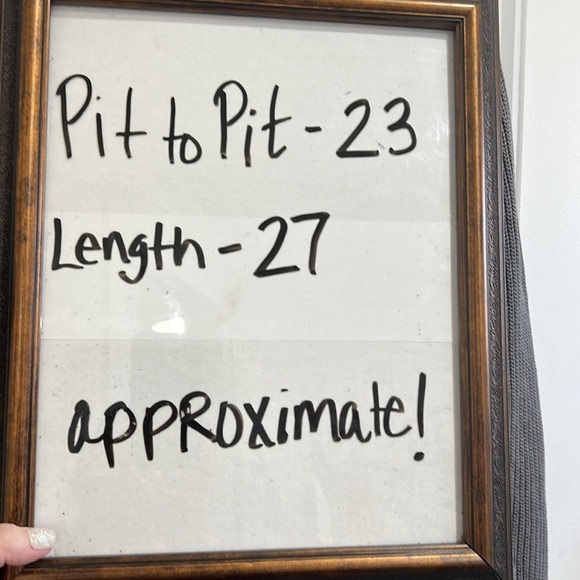 Pit to Pit - 23
Length - 27
appRoximate!